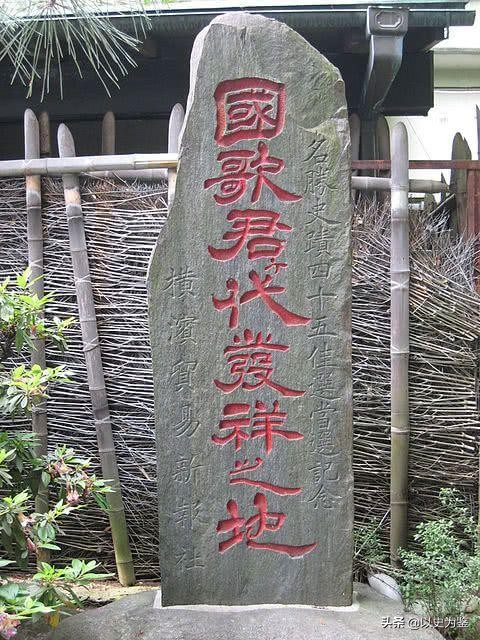 名勝史蹟四十五佳選當選記念
國歌君が代發祥之地
横濱貿易新報社
头条 @以史为鉴